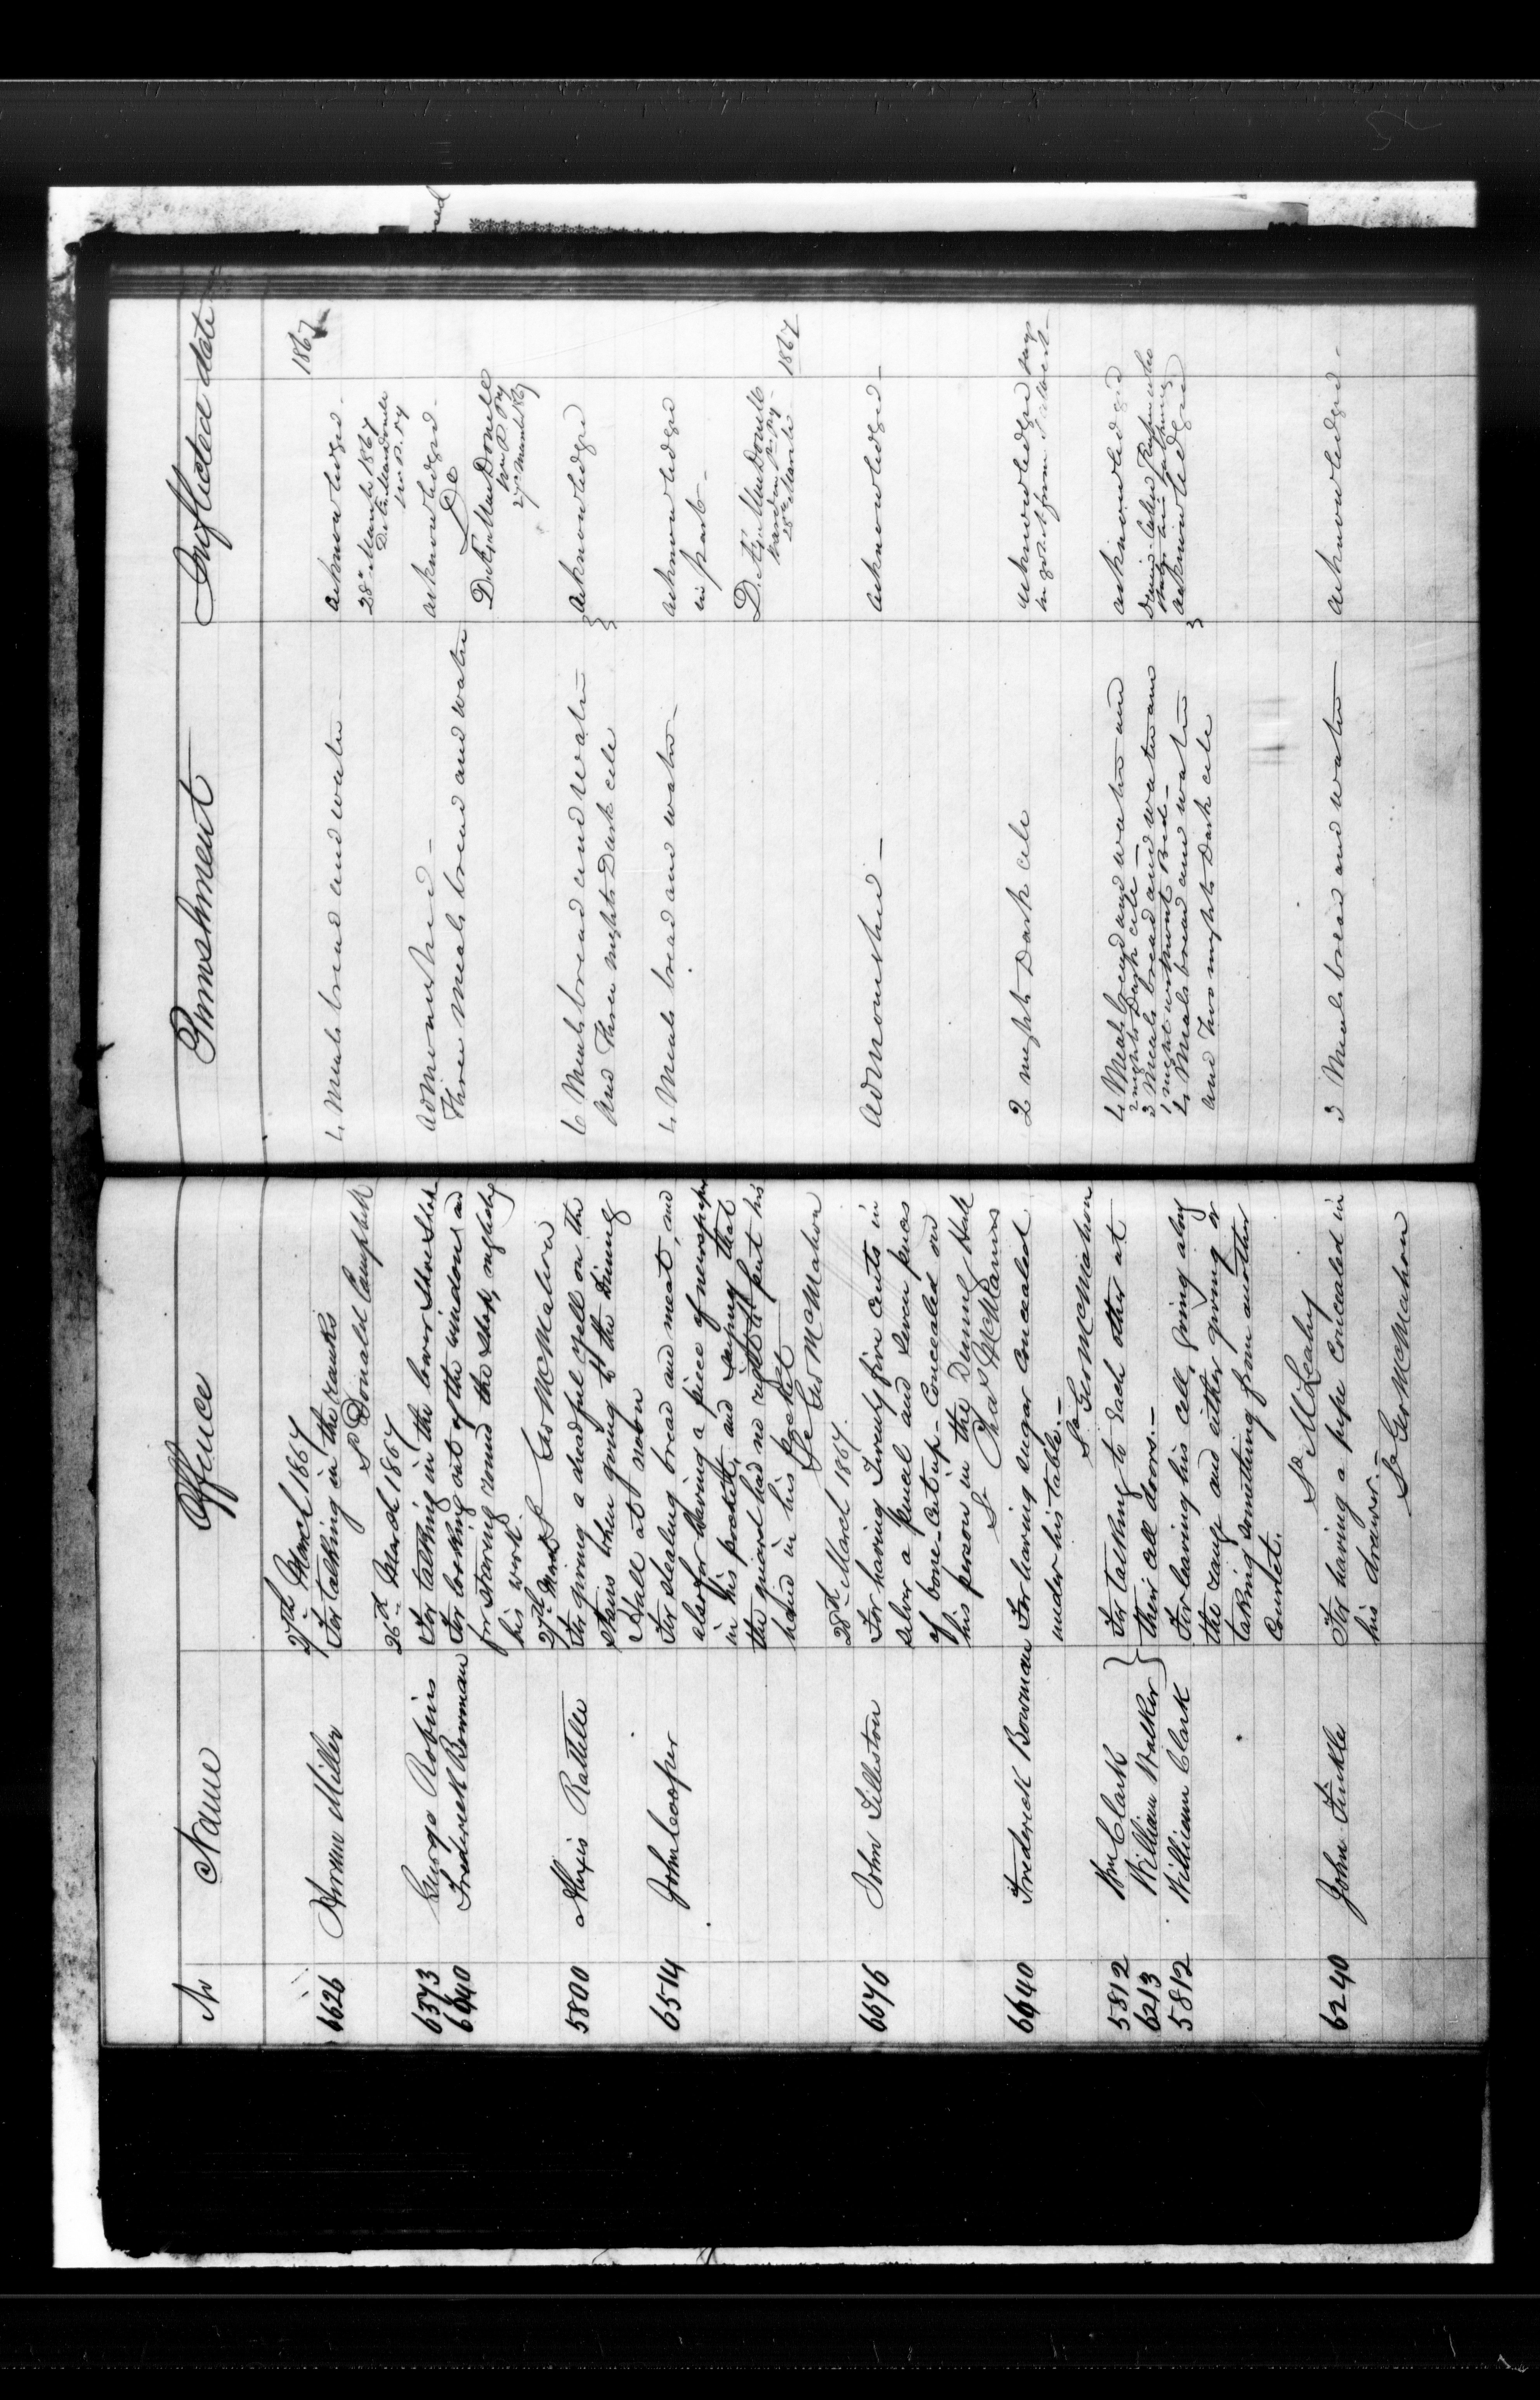 No Name Offence Punishment Inflicted date
27th March 1867 1867
6626 Hiram Miller For talking in the ranks 4 Meals bread and water acknowledged -
Sd Donald Campbell 28th March 1867
26th March 1867
6373 George Robins For talking in the lower Shoe Shop admonished - acknowledged -
6640 Frederick Bowman For looking out of the window and Three meals bread and water Do
for staring round the shop, neglecting
his work.
27th March Sd Geo McMahon 27th March 1867
5800 Alexis Rattelle For giving a dreadful yell on the 6 Meals bread and water } acknowledged
Stairs when going to the Dinning and Three nights Dark cell
Hall at noon
6514 John Cooper For stealing bread and meat, and 4 Meals bread and water - acknowledged
also for having a piece of newspaper in part -
in his pocket, and saying that
the guard had no right to put his
hand in his pocket
Sd Geo McMahon 28th March 1867
28th March 1867.
6676 John Tilleston For having Twenty five cents in admonished - acknowledged -
silver a pencil and seven pieces
of bone-cut up - Concealed on
his person in the Dinning Hall
Sd Chas McManus
6640 Frederick Bowman For having sugar concealed 2 nights Dark cell acknowledged says
under his table. -
Sd Geo McMahon
5812 Wm Clark } For talking to each other at 4 Meals bread and water and acknowledged
2 nights Dark cell -
6213 William Walker } their cell doors. - 3 Meals bread and water and
1 night without Bed -
5812 William Clark For leaving his cell, going along 4 Meals bread and water } acknowledged
the range and either giving or and Two nights Dark cell
taking something from another
Convict.
Sd M Leahy
6240 John Finkle For having a pipe concealed in 3 Meals bread and water acknowledged -
his drawer. -
Sd Geo McMahon